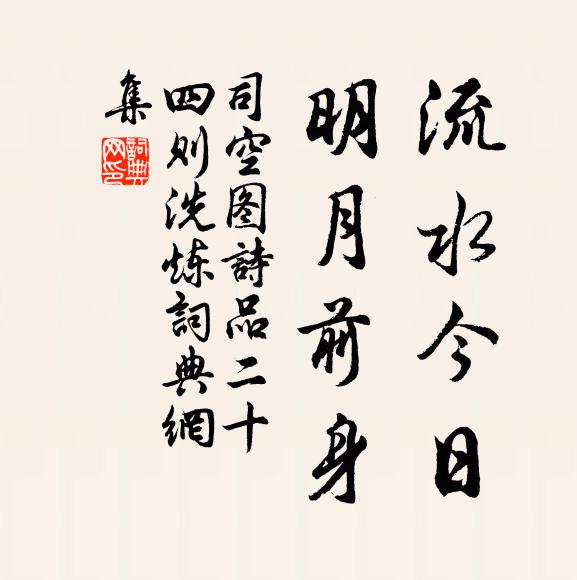 流水今日
明月前身
司空图詩品二十
四则洗炼詞典網
集
詞典
网印